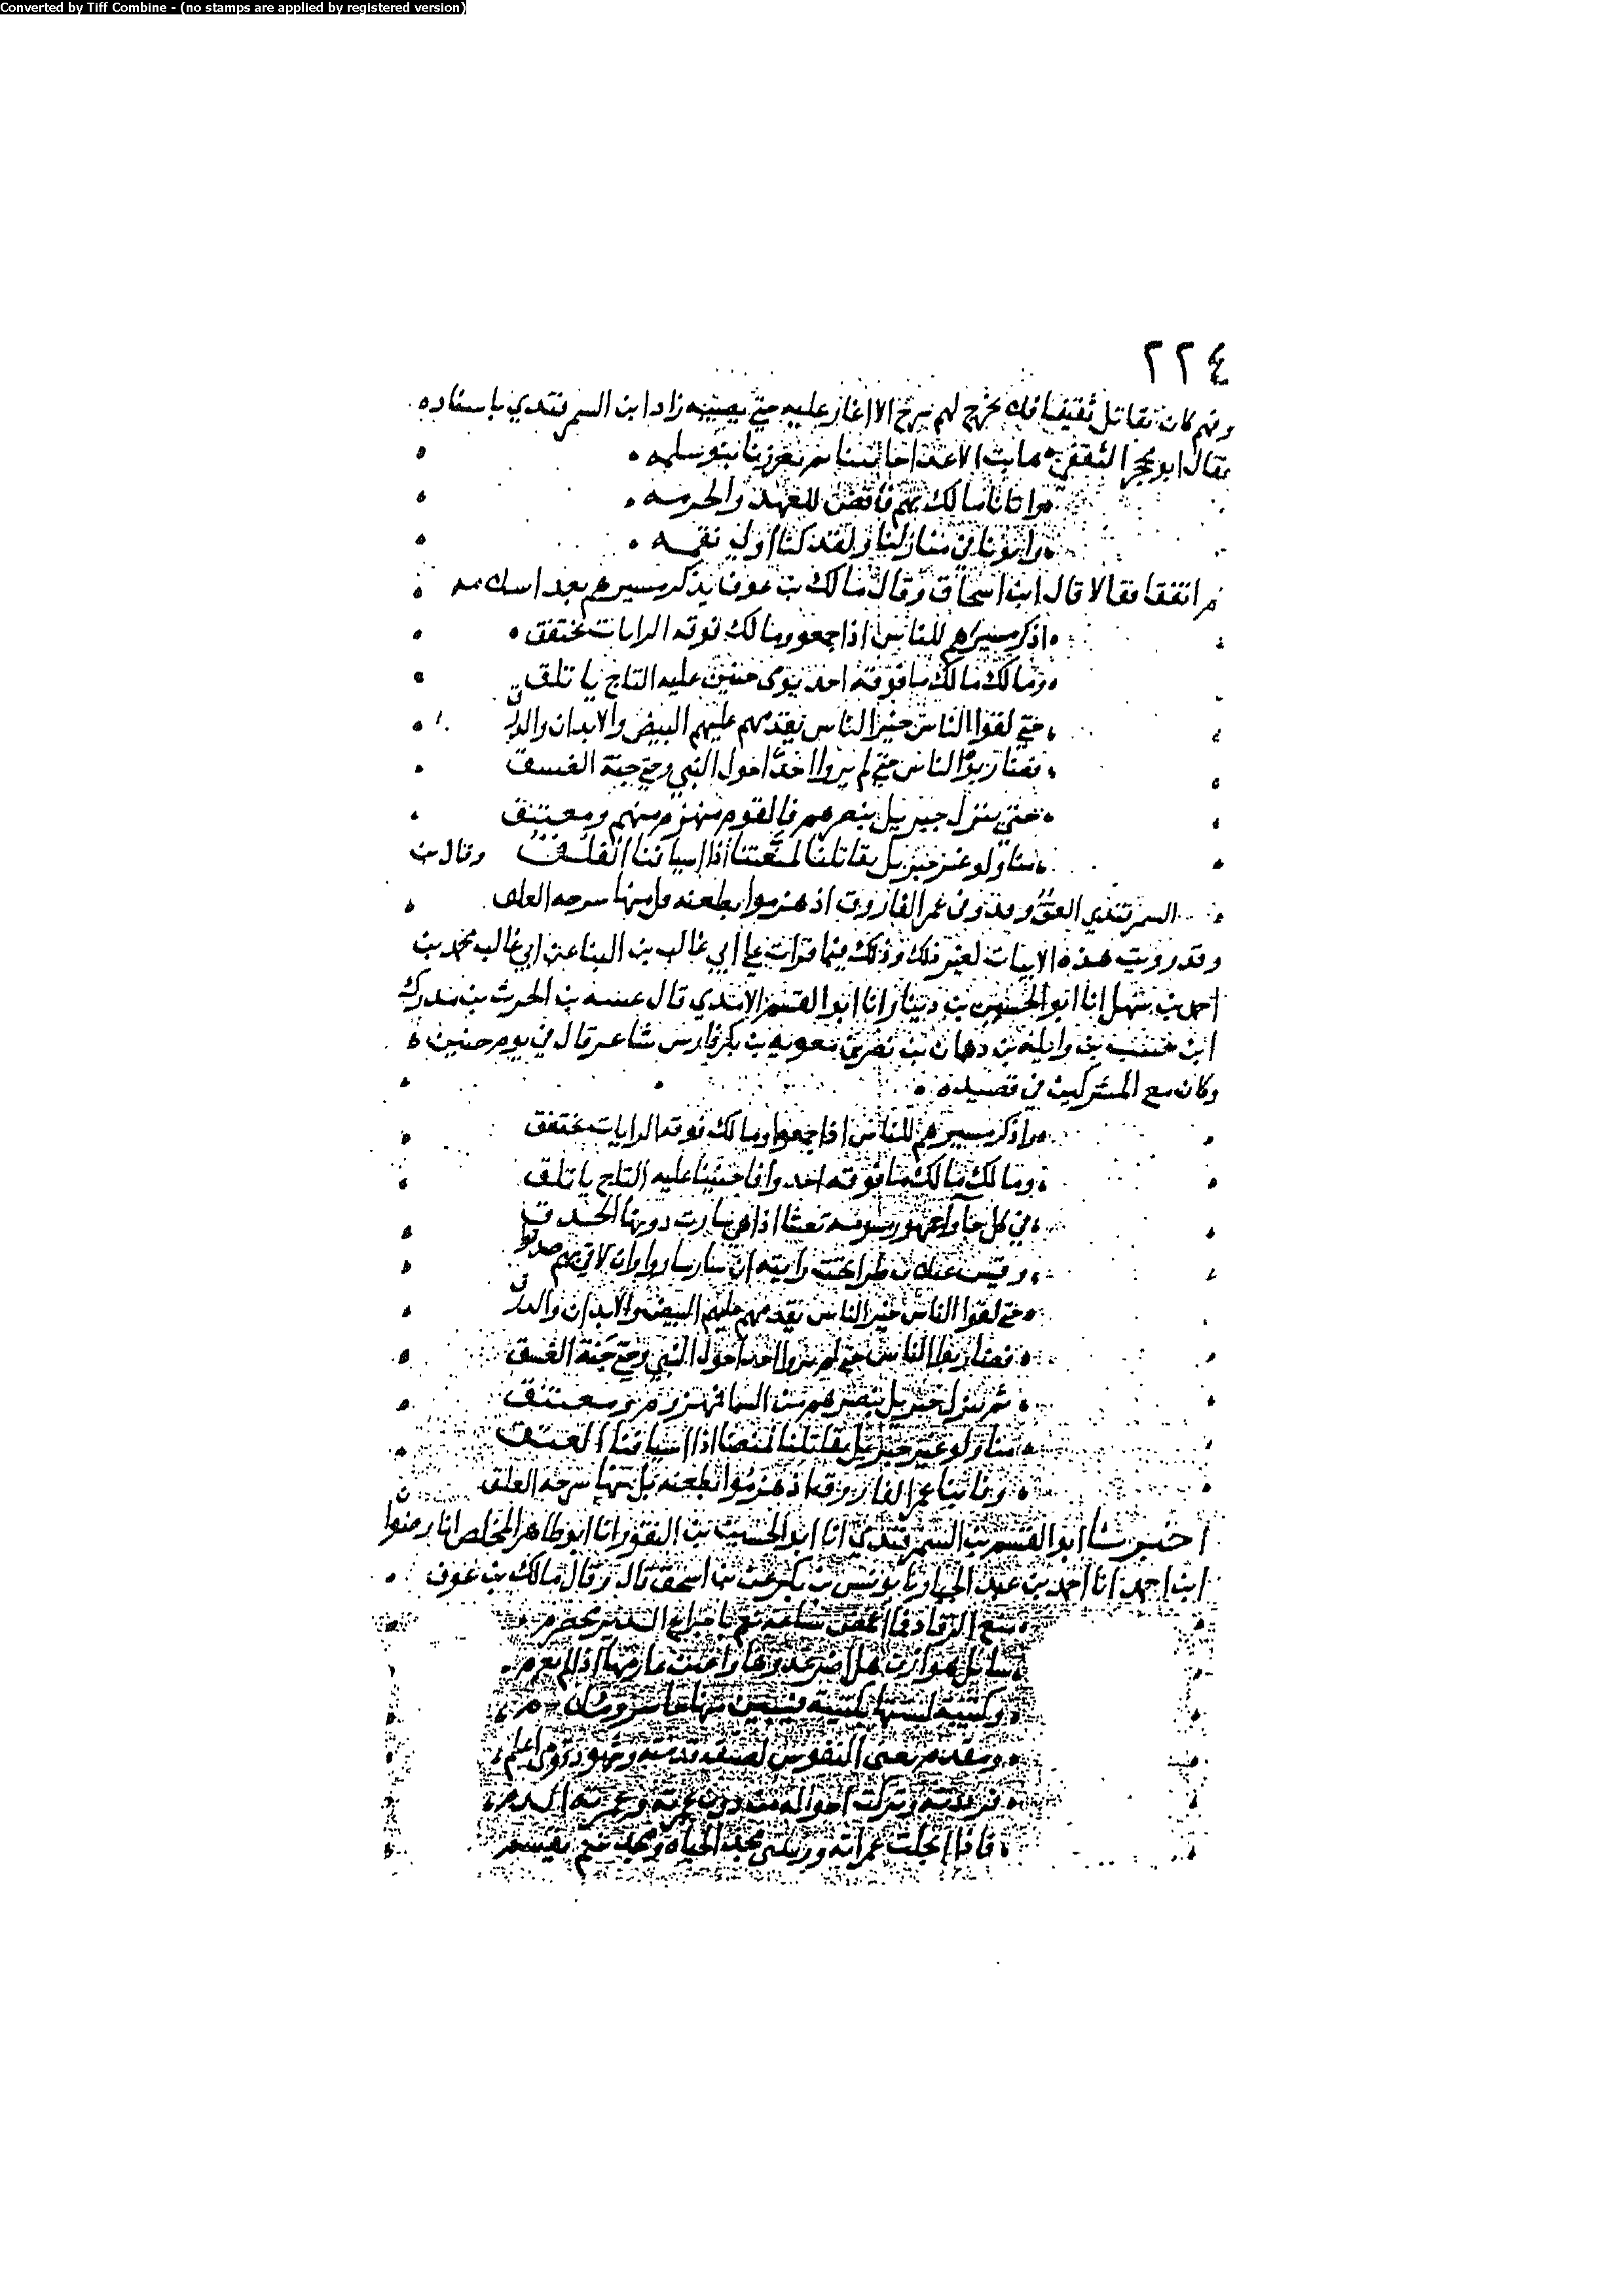 Converted by Tiff Combine - (no stamps are applied by registered version)
٢٢٤
وفهم كان يقاتل ثقيفا فلا يخرج لهم سرح الا اغار عليه حتى يصيبه زاد ابن السمرقندي باسناده
فقال ابو محجن الثقفي هابت الاعداء جانبنا ثم تغزونا بنو سلمه
واتانا مالك بهم ناقض للعهد والحرمه
واتونا في منازلنا ولقد كنا اولي نقمه
ثم اتفقا فقالا قال ابن اسحاق وقال مالك بن عوف يذكر مسيرهم بعد اسلامه
اذكر مسيرهم للناس اذ جمعوا ومالك فوقه الرايات تختفق
ومالك مالك ما فوقه احد يوم حنين عليه التاج ياتلق
حتى لقوا الناس خير الناس يقدمهم عليهم البيض والابدان والدرق
فضاربوا الناس حتى لم يروا احدا حول النبي وحتى جنه الغسق
حتى ينزل جبريل بنصرهم فالقوم منهزم منهم ومعتنق
منا ولو غير جبريل يقاتلنا لمنعتنا اذا اسيافنا الفلق وقال بن
السمرقندي العتق وقد وفى عمر الفاروق اذ هزموا بطعنه بل منها سرجه العلق
وقد رويت هذه الابيات لغير مالك وذلك فيما قرات على ابي غالب بن البنا عن ابي غالب محمد بن
احمد بن سهل انا ابو الحسين بن دينار انا ابو القسم الامدي قال عسه بن الحرث بن مدرك
ابن حبيب بن وايلة بن دهمان بن نصر بن معوية بن بكر فارس شاعر قال في يوم حنين
وكان مع المشركين في قصيده
واذكر مسيرهم للناس اذ جمعوا ومالك فوقه الرايات تختفق
ومالك مالك ما فوقه احد وافا حنينا عليه التاج ياتلق
في كل جاواء جمهور مسومه تعشا اذا هي سارت دونها الحدق
وقيس عيلان طرا تحت رايته ان سار ساروا وان لاقى بهم صدقوا
حتى لقوا الناس خير الناس يقدمهم عليهم البيض والابدان والدرق
فضاربوا الناس حتى لم يروا احدا حول النبي وحتى جنه الغسق
ثم نزل جبريل بنصرهم من السما فمهزوم ومعتنق
منا ولو غير جبريل يقاتلنا لمنعنا اذا اسيافنا العتق
وفاتنا عمر الفاروق اذ هزموا بطعنه بل منها سرجه العلق
اخبرنا ابو القسم بن السمرقندي انا ابو الحسين بن النقور انا ابو طاهر المخلص انا رضوان
ابن احمد انا احمد بن عبد الجبار نا يونس بن بكير عن بن اسحق قال وقال مالك بن عوف
منع الرقاد فما اغمض ساعة نعم باجزاع السدير مخضرم
سائل هوازن هل اضر عدوها واعين غارمها اذا لم يغرم
وكتيبة لبستها بكتيبة فيئين منها حاسر وملام
ومقدم تعيى النفوس لضيقه قدمته وشهود قومي اعلم
فوردته وتركت اخوانا له من دون غمرته وغمرته الدم
فاذا انجلت غمراته ورثتني مجد الحياة ومجد غنم يقسم